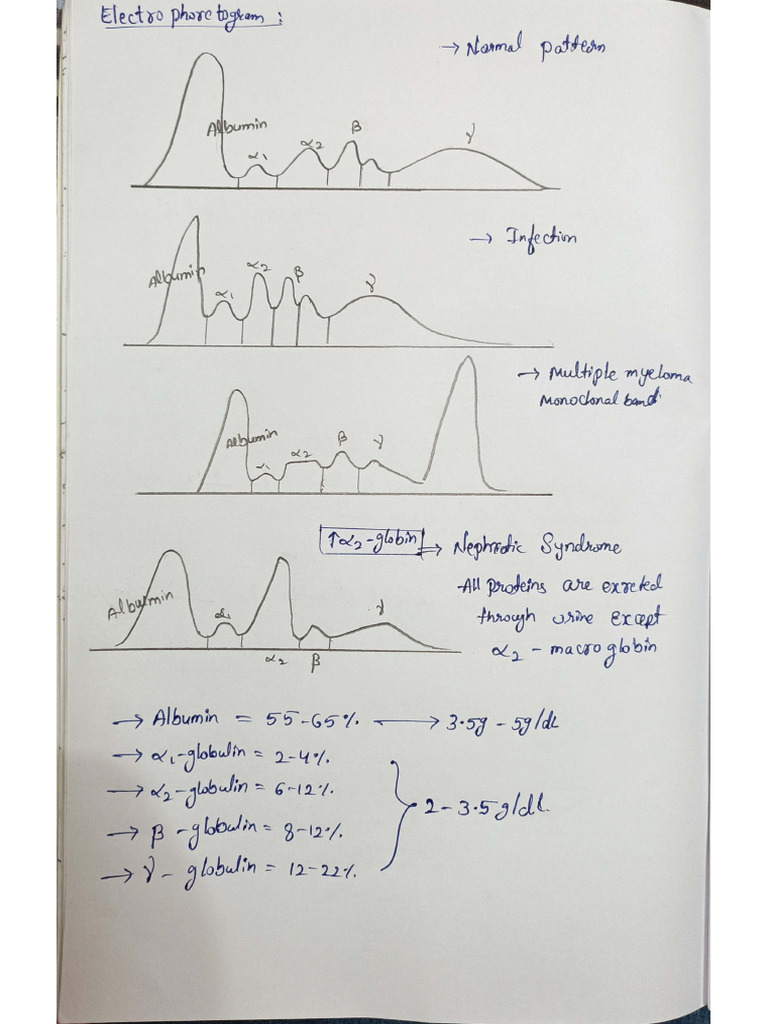 Electrophoretogram :
→ Normal pattern
Albumin α1 α2 β γ
→ Infection
Albumin α1 α2 β γ
→ Multiple myeloma
Monoclonal band
Albumin α1 α2 β γ
↑α2-globin ⇒ Nephrotic Syndrome
All proteins are excreted
through urine except
α2 - macroglobin
Albumin α1 α2 β γ
→ Albumin = 55-65% → 3.5g - 5g/dL
→ α1-globulin = 2-4%.
→ α2-globulin = 6-12%.
→ β -globulin = 8-12%.
→ γ - globulin = 12-22%.
2 - 3.5 g/dL